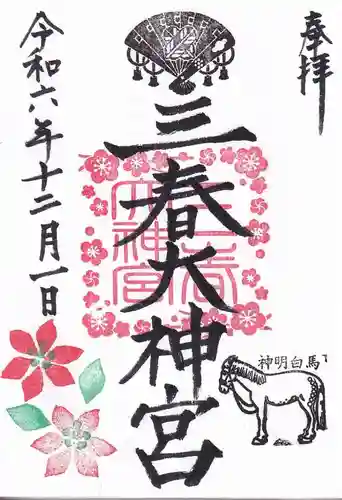 奉拝
三春大神宮
三春大神宮
令和六年十二月一日
神明白馬